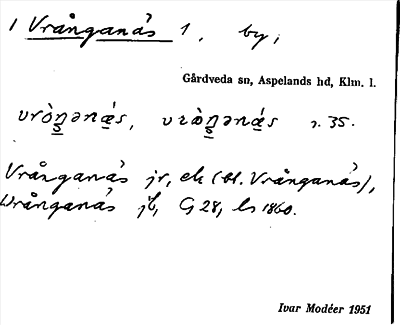 1 Vrånganäs 1, by;
Gårdveda sn, Aspelands hd, Klm. l.
vròŋənæ´s, vròŋənæ´s s. 35.
Vrånganäs jr, ek (bl. Vrånganäs),
Wrånganäs jb, G 28, ls 1860.
Ivar Modéer 1951